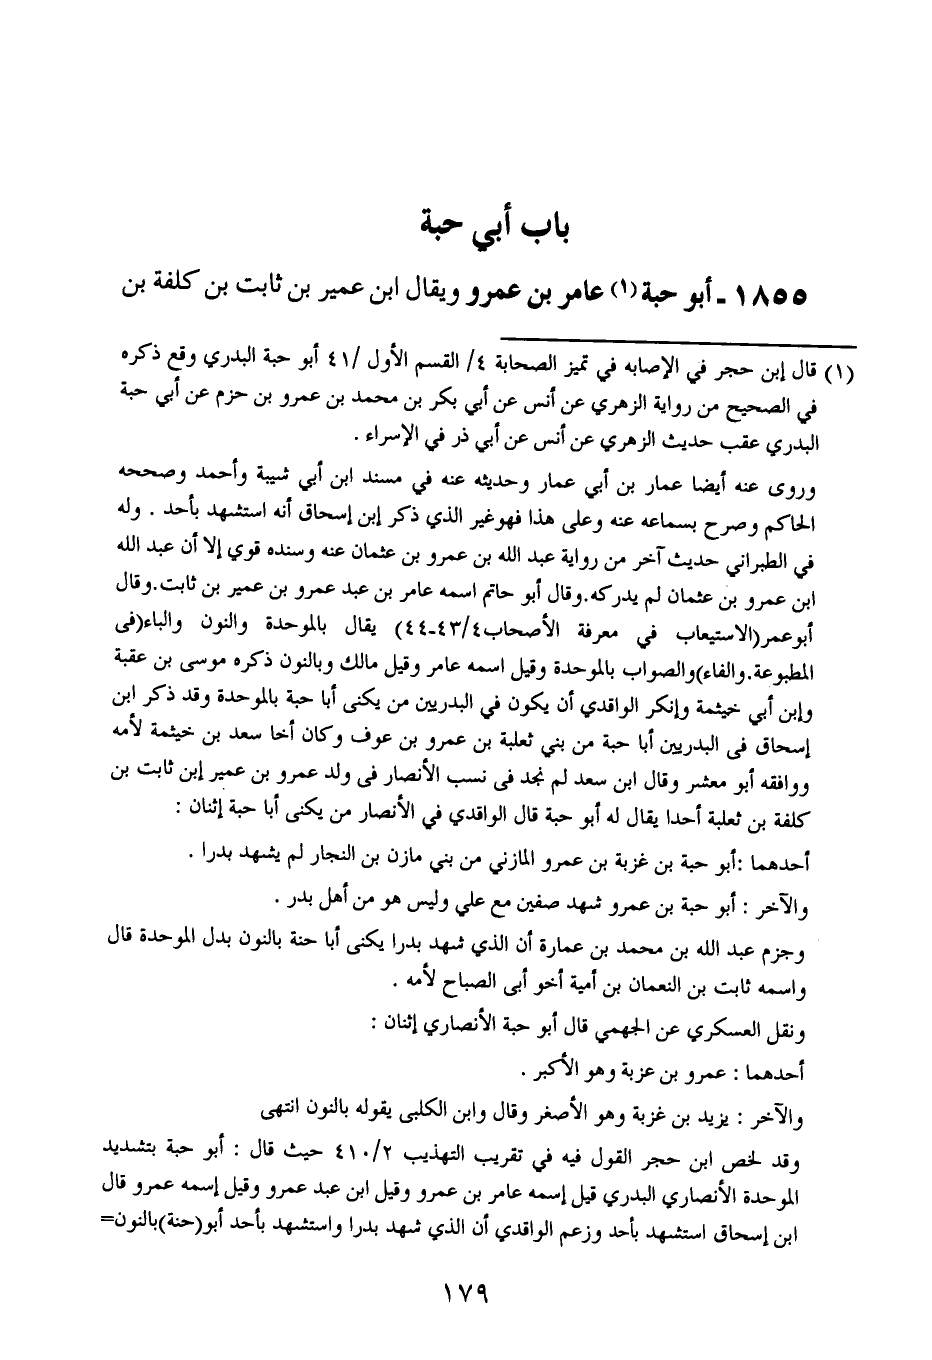 باب أبي حبة
١٨٥٥ - أبو حبة (١) عامر بن عمرو ويقال ابن عمير بن ثابت بن كلفة بن
(١) قال إبن حجر في الإصابه في تميز الصحابة ٤/ القسم الأول /٤١ أبو حبة البدري وقع ذكره
في الصحيح من رواية الزهري عن أنس عن أبي بكر بن محمد بن عمرو بن حزم عن أبي حبة
البدري عقب حديث الزهري عن أنس عن أبي ذر في الإسراء .
وروى عنه أيضا عمار بن أبي عمار وحديثه عنه في مسند ابن أبي شيبة وأحمد وصححه
الحاكم وصرح بسماعه عنه وعلى هذا فهوغير الذي ذكر إبن إسحاق أنه استشهد بأحد . وله
في الطبراني حديث آخر من رواية عبد الله بن عمرو بن عثمان عنه وسنده قوي إلا أن عبد الله
ابن عمرو بن عثمان لم يدركه.وقال أبو حاتم اسمه عامر بن عبد عمرو بن عمير بن ثابت.وقال
أبوعمر(الاستيعاب في معرفة الأصحاب٤/٤٣-٤٤) يقال بالموحدة والنون والباء(فى
المطبوعة.والفاء)والصواب بالموحدة وقيل اسمه عامر وقيل مالك وبالنون ذكره موسى بن عقبة
وإبن أبي خيثمة وإنكر الواقدي أن يكون في البدريين من يكنى أبا حبة بالموحدة وقد ذكر ابن
إسحاق فى البدريين أبا حبة من بني ثعلبة بن عمرو بن عوف وكان أخا سعد بن خيثمة لأمه
ووافقه أبو معشر وقال ابن سعد لم نجد فى نسب الأنصار فى ولد عمرو بن عمير إبن ثابت بن
كلفة بن ثعلبة أحدا يقال له أبو حبة قال الواقدي في الأنصار من يكنى أبا حبة إثنان :
أحدهما :أبو حبة بن غزية بن عمرو المازني من بني مازن بن النجار لم يشهد بدرا .
والآخر : أبو حبة بن عمرو شهد صفين مع علي وليس هو من أهل بدر .
وجزم عبد الله بن محمد بن عمارة أن الذي شهد بدرا يكنى أبا حنة بالنون بدل الموحدة قال
واسمه ثابت بن النعمان بن أمية أخو أبى الصباح لأمه .
ونقل العسكري عن الجهمي قال أبو حبة الأنصاري إثنان :
أحدهما : عمرو بن عزبة وهو الأكبر .
والآخر : يزيد بن غزبة وهو الأصغر وقال وابن الكلبى يقوله بالنون انتهى
وقد لخص ابن حجر القول فيه في تقريب التهذيب ٤١٠/٢ حيث قال : أبو حبة بتشديد
الموحدة الأنصاري البدري قيل إسمه عامر بن عمرو وقيل ابن عبد عمرو وقيل إسمه عمرو قال
ابن إسحاق استشهد بأحد وزعم الواقدي أن الذي شهد بدرا واستشهد بأحد أبو(حنة)بالنون=
١٧٩